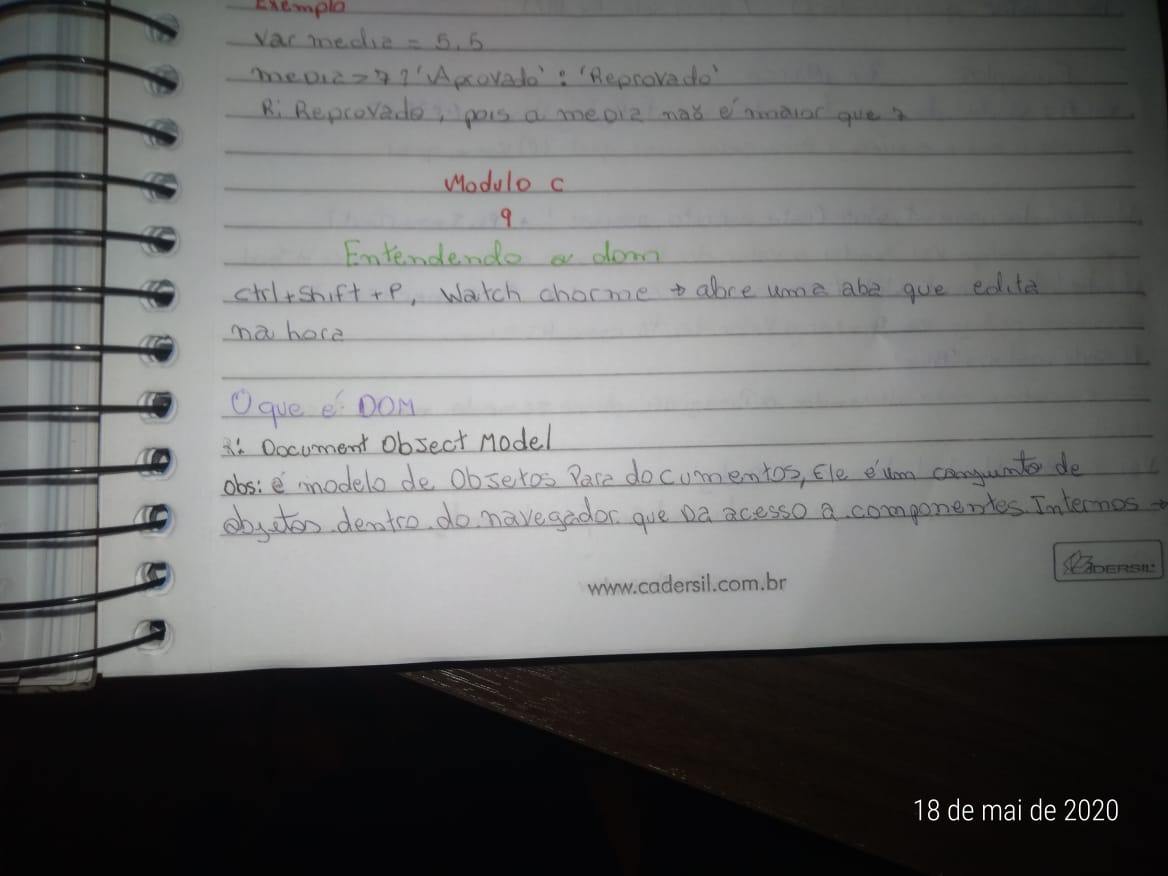 Exemplo
var media = 5,5
media > 7 ? 'Aprovado' : 'Reprovado'
R: Reprovado, pois a media não é maior que 7
Modulo C
9
Entendendo a dom
ctrl+shift+P, Watch chorme → abre uma aba que edita
na hora
O que é DOM
R: Document Object Model
obs: é modelo de Objetos Para documentos, Ele é um conjunto de
objetos dentro do navegador que da acesso a componentes Internos →
CADERSIL
www.cadersil.com.br
18 de mai de 2020